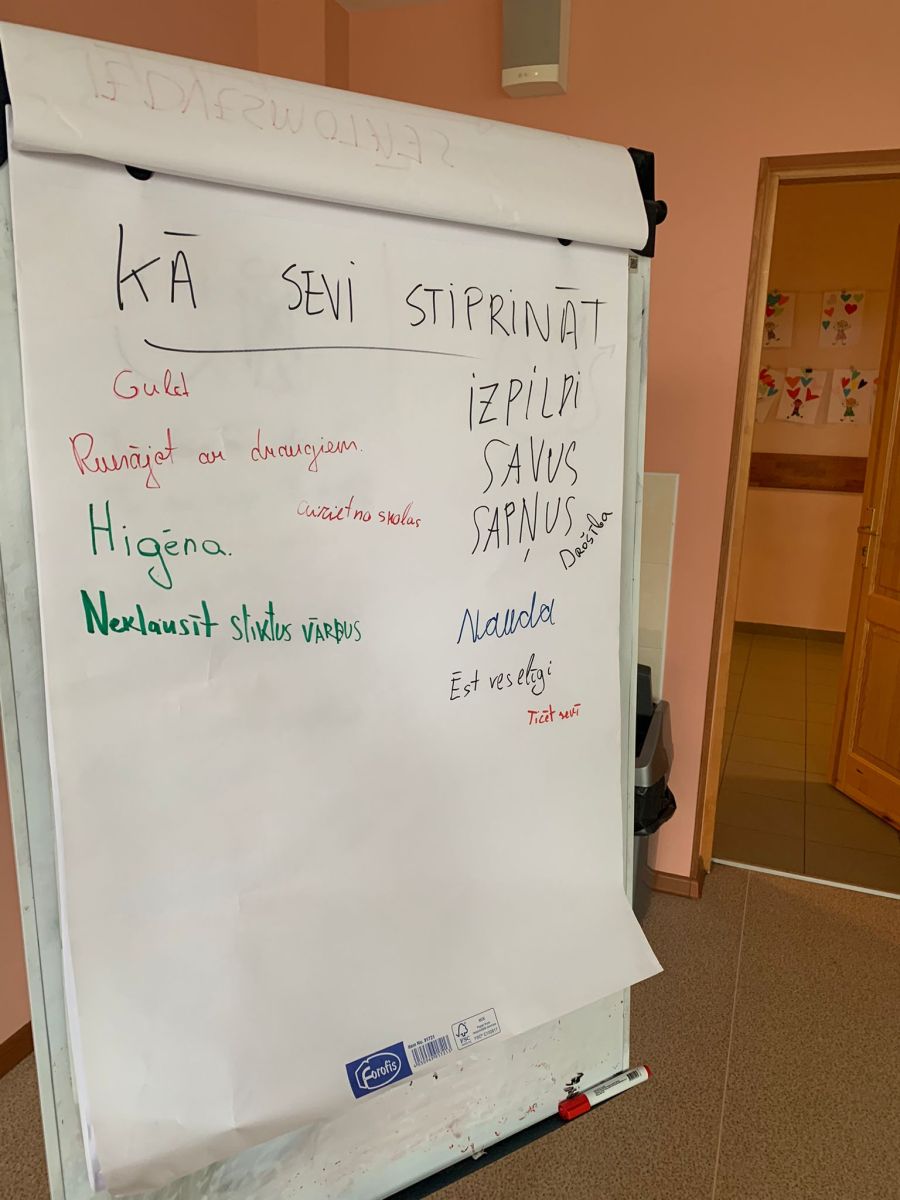 KĀ SEVI STIPRINĀT
Gulēt
Runājot ar draugiem.
aiziet no skolas
Higēna.
Neklausīt sliktus VĀRDUS
IZPILDI
SAVUS
SAPŅUS
Drošība
Nauda
Ēst veselīgi
Ticēt sevī
Forofis
FSC